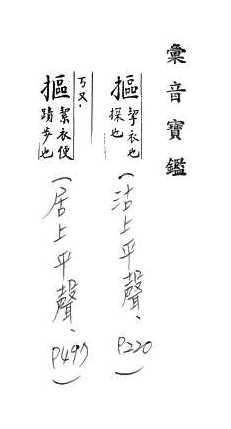 彙音寶鑑
摳 挈衣也
探也
(沽上平聲、P220)
ㄎㄡ.
摳 絜衣便
蹟步也
(居上平聲、P497)